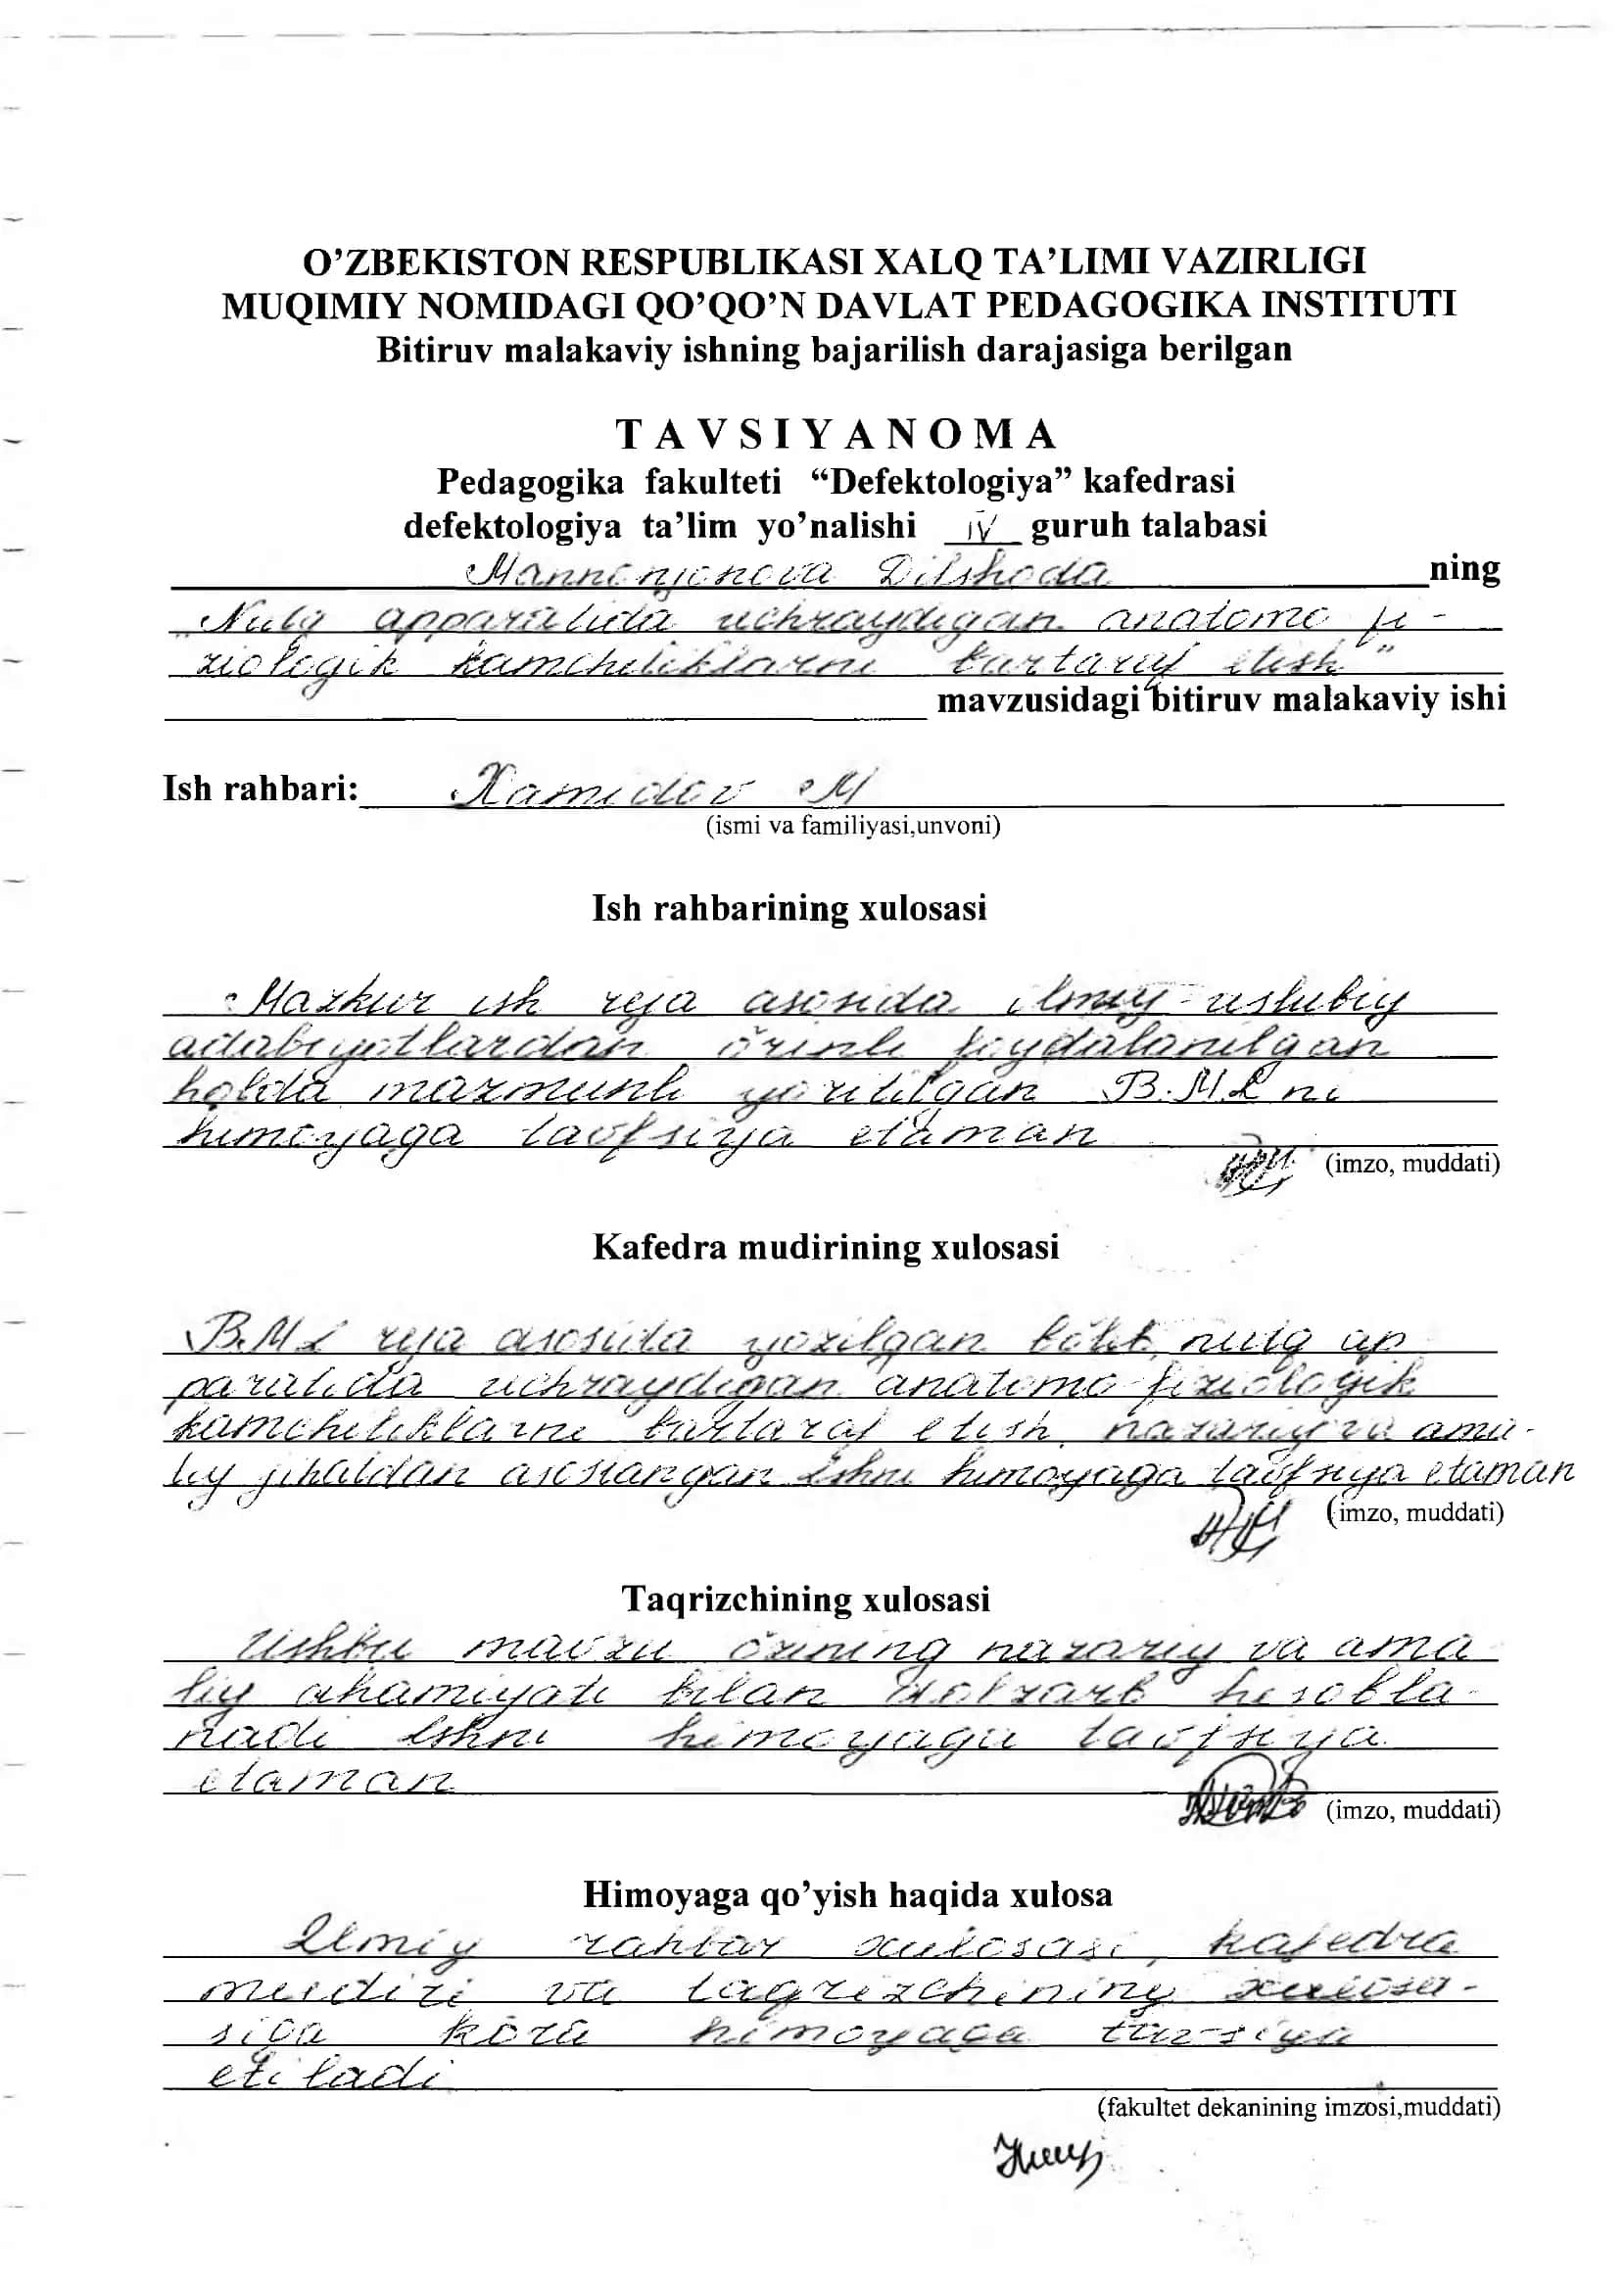 O’ZBEKISTON RESPUBLIKASI XALQ TA’LIMI VAZIRLIGI
MUQIMIY NOMIDAGI QO’QO’N DAVLAT PEDAGOGIKA INSTITUTI
Bitiruv malakaviy ishning bajarilish darajasiga berilgan
T A V S I Y A N O M A
Pedagogika fakulteti “Defektologiya” kafedrasi
defektologiya ta’lim yo’nalishi IV guruh talabasi
Mannonjonova Dilshoda ning
„Nutq apparatida uchraydigan anatomo fi-
ziologik kamchiliklarni bartaraf etish”
mavzusidagi bitiruv malakaviy ishi
Ish rahbari: Xamidov M
(ismi va familiyasi,unvoni)
Ish rahbarining xulosasi
Mazkur ish reja asosida ilmiy-uslubiy
adabiyotlardan õrinli foydalanilgan
holda mazmunli yoritilgan B.M.I ni
himoyaga tavfsiya etaman
(imzo, muddati)
Kafedra mudirining xulosasi
B.M.I reja asosida yozilgan bõlib, nutq ap
paratida uchraydigan anatomo-fiziologik
kamchiliklarni bartaraf etish nazariy va ama-
liy jihatdan asoslangan Ishni himoyaga tavfsiya etaman
(imzo, muddati)
Taqrizchining xulosasi
Ushbu mavzu õzining nazariy va ama
liy ahamiyati bilan dolzarb hisobla-
nadi Ishni himoyaga tavfsiya
etaman
(imzo, muddati)
Himoyaga qo’yish haqida xulosa
Ilmiy rahbar xulosasi, kafedra
mudiri va taqrizchining xulosa-
siga kõra himoyaga tavsiya
etiladi
(fakultet dekanining imzosi,muddati)